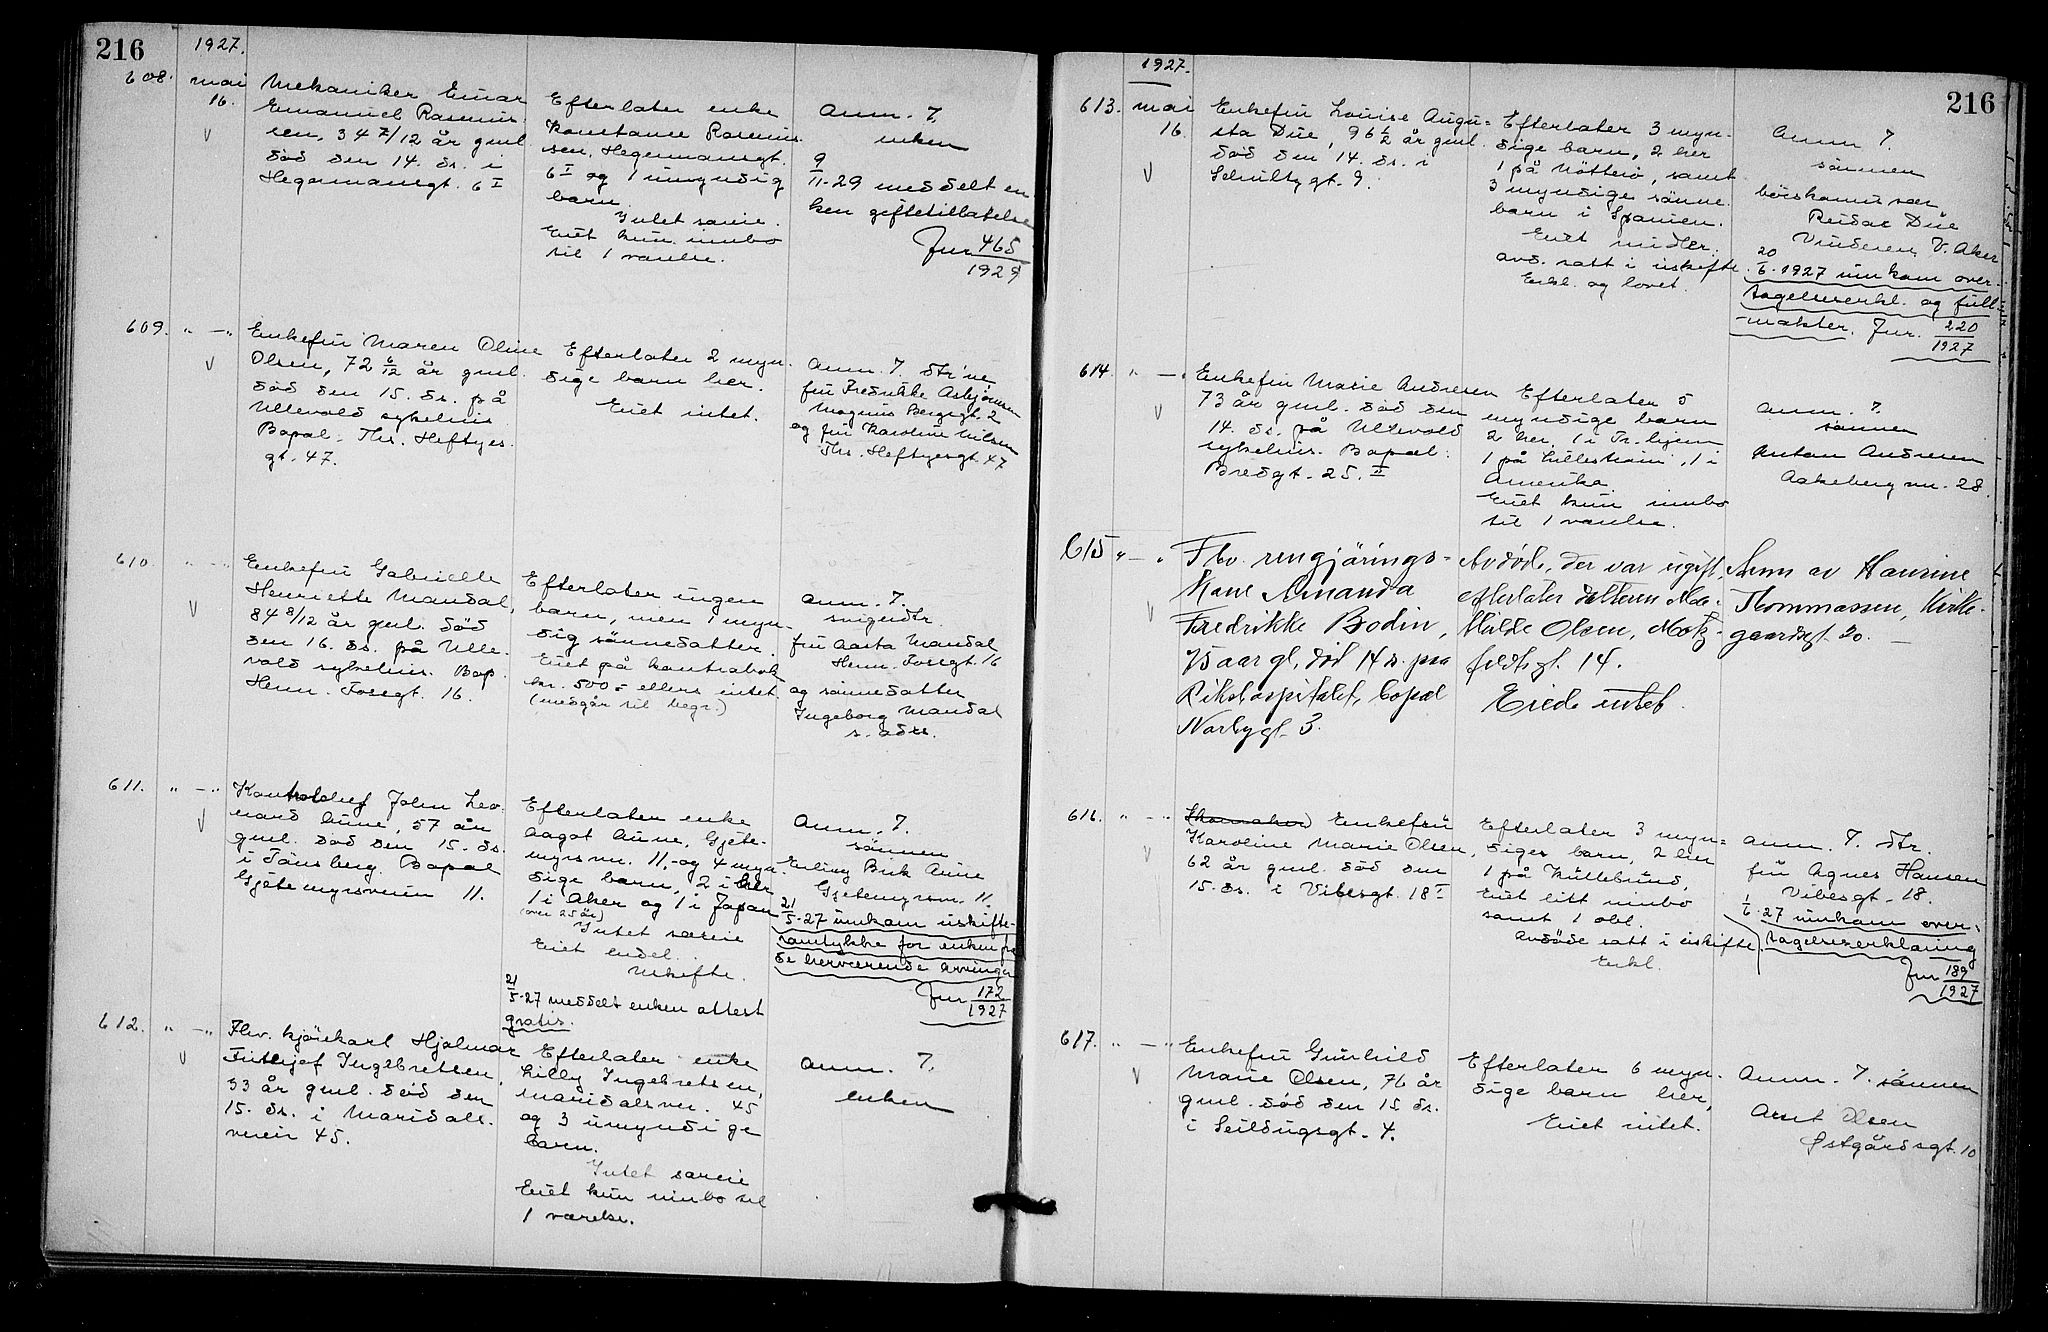 216
1927.
608. mai 16.
Mekaniker Einar
Emanuel Rasmus-
sen, 34 7/12 år gml.
död den 14. ds. i
Hegermansgt. 6 I
Efterlater enke
Konstance Rasmus-
sen, Hegermansgt.
6 I og 1 umyndig
barn.
Intet særeie.
Eiet kun innbo
til 1 værelse.
Anm. 7.
enken
9/11-29 meddelt en
ken giftetillatelse
Jnr 465/1929
609. " — "
Enkefru Maren Oline
Olsen, 72 6/12 år gml.
död den 15. ds. på
Ullevold sykehus.
Bopæl: Ths. Heftyes
gt. 47.
Efterlater 2 myn-
dige barn her.
Eiet intet.
Anm. 7. dtr'ne
fru Fredrikke Asbjörnsen
Magnus Bergsgt. 2
og fru Karoline Nilsen
Ths. Heftyesgt. 47
610. " — "
Enkefru Gabrielle
Henriette Mandal,
84 8/12 år gml. död
den 16. ds. på Ulle-
vold sykehus. Bop.
Henr. Ibsegt. 16.
Efterlater ingen
barn, men 1 myn-
dig sönnedatter.
Eiet på kontrabok
kr. 500 - ellers intet
(medgår til begr.)
Anm. 7.
svigerdtr.
fru Aasta Mandal
Henr. Ibsegt. 16
og sönnedatter
Ingeborg Mandal
s. adr.
611. " — "
Kontorchef John Leo-
nard Aune, 57 år
gml. död den 15. ds.
i Tönsberg. Bopæl
Gjetemyrsveien 11.
Efterlater enke
Aagot Aune, Gjete-
myrsvn. 11, og 4 myn-
dige barn, 2 i her
1 i Aker og 1 i Japan
(over 25 år)
Intet særeie
Eiet endel.
Uskifte.
21/5-27 meddelt enken attest
gratis.
Anm. 7.
sönnen
Erling Birk Aune
Gjetemyrsvn. 11.
21/5-27 innkom uskifte-
samtykke for enken fra
de herværende arvinger
Jnr 172/1927
612. " — "
Fhv. kjörekarl Hjalmar
Fritjof Ingebretsen,
33 år gml. död den
15. ds. i Maridals-
veien 45.
Efterlater enke
Lilly Ingebretsen,
Maridalsvn. 45
og 3 umyndige
barn.
Intet særeie
Eiet kun innbo til
1 værelse.
Anm. 7.
enken
216
1927.
613. mai 16.
Enkefru Louise Augu-
sta Due, 96 1/2 år gml.
död den 14. ds. i
Schultzgt. 9.
Efterlater 3 myn-
dige barn, 2 her
1 på Nötterö, samt
3 myndige sönne-
barn i Spanien.
Eiet midler.
avd. satt i uskifte
Erkl. og lovet.
Anm 7.
sönnen
börskommissær
Reidar Due
Vinderen, V. Aker
20/6-1927 innkom over-
tagelseserkl. og full-
makter. Jnr. 220/1927
614. " — "
Enkefru Marie Andresen
73 år gml. död den
14. ds. på Ullevold
sykehus. Bopæl:
Bredgt. 25. II
Efterlater 5
myndige barn
2 her, 1 i Tr.hjem
1 på Lilleström, 1 i
Amerika.
Eiet kun innbo
til 1 værelse.
Anm. 7.
sönnen
Anton Andresen
Aakebergvn. 28.
615 " — "
Fhv. rengjörings-
kone Amanda
Fredrikke Bodin,
75 aar gl, död 14 ds. paa
Rikshospitalet, bopæl
Norbygt. 3.
Avdöde, der var ugift,
efterlater datteren Ma-
thilde Olsen, Motz-
feldtsgt. 14.
Eiede intet.
Anm av Hansine
Thommassen, Kirke-
gaardsgt. 20. —
616. " — "
Enkefru
Karoline Marie Olsen,
62 år gml. död den
15. ds. i Vibesgt. 18 I
Efterlater 3 myn-
dige barn, 2 her
1 på Kullebund,
Eiet litt innbo
samt 1 obl.
Avdöde satt i uskifte.
Erkl.
Anm. 7. dtr.
fru Agnes Hansen
Vibesgt. 18.
1/6-27 innkom over-
tagelseserklæring
Jnr 189/1927
617. " — "
Enkefru Gunhild
Marie Olsen, 76 år
gml. död den 15 ds.
i Seilduksgt. 4.
Efterlater 6 myn-
dige barn her,
Eiet intet.
Anm. 7. sönnen
Arnt Olsen
Østgårdsgt. 10